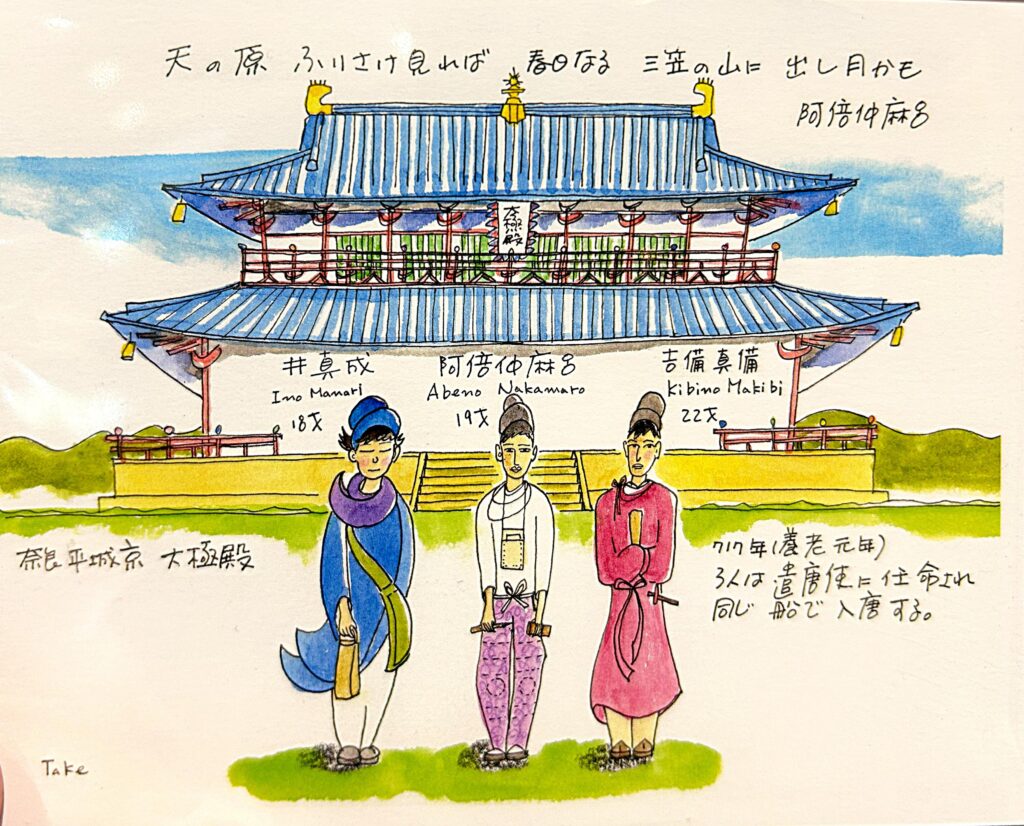 天の原 ふりさけ見れば 春日なる 三笠の山に 出し月かも
阿倍仲麻呂
井真成
Ino Manari
18才
阿倍仲麻呂
Abeno Nakamaro
19才
吉備真備
Kibino Makibi
22才
奈良平城京 大極殿
717年(養老元年)
3人は遣唐使に任命され
同じ船で入唐する。
Take